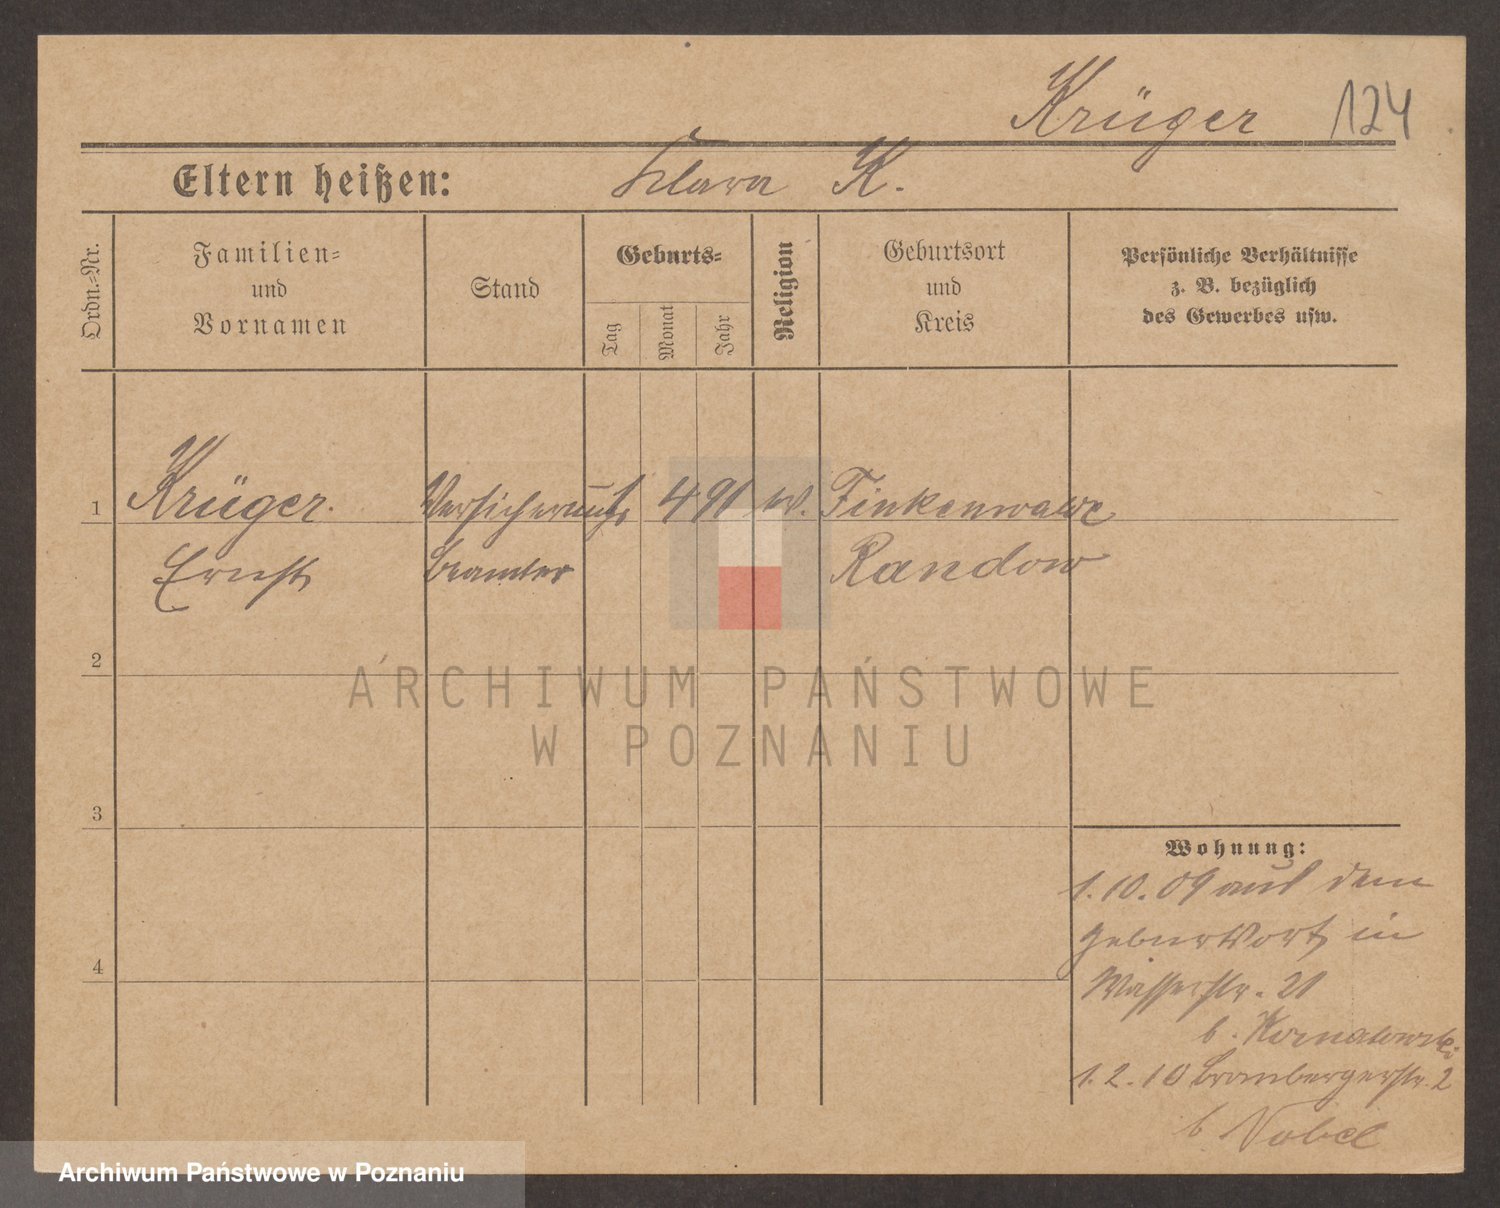 Krüger 124
Eltern heißen: Klara K.
Ordn.-Nr.
Familien-
und
Vornamen
Stand
Geburts-
Tag
Monat
Jahr
Religion
Geburtsort
und
Kreis
Persönliche Verhältnisse
z. B. bezüglich
des Gewerbes usw.
1 Krüger. 4 91 Finkenwalde
Ernst beamter Randow
2
ARCHIWUM PAŃSTWOWE
W POZNANIU
3
Wohnung:
1.10.09 aus dem
Geburtsort in
4
Wasserstr. 21
b.
1.2.10 Brombergerstr. 2
b. Nobel
Archiwum Państwowe w Poznaniu